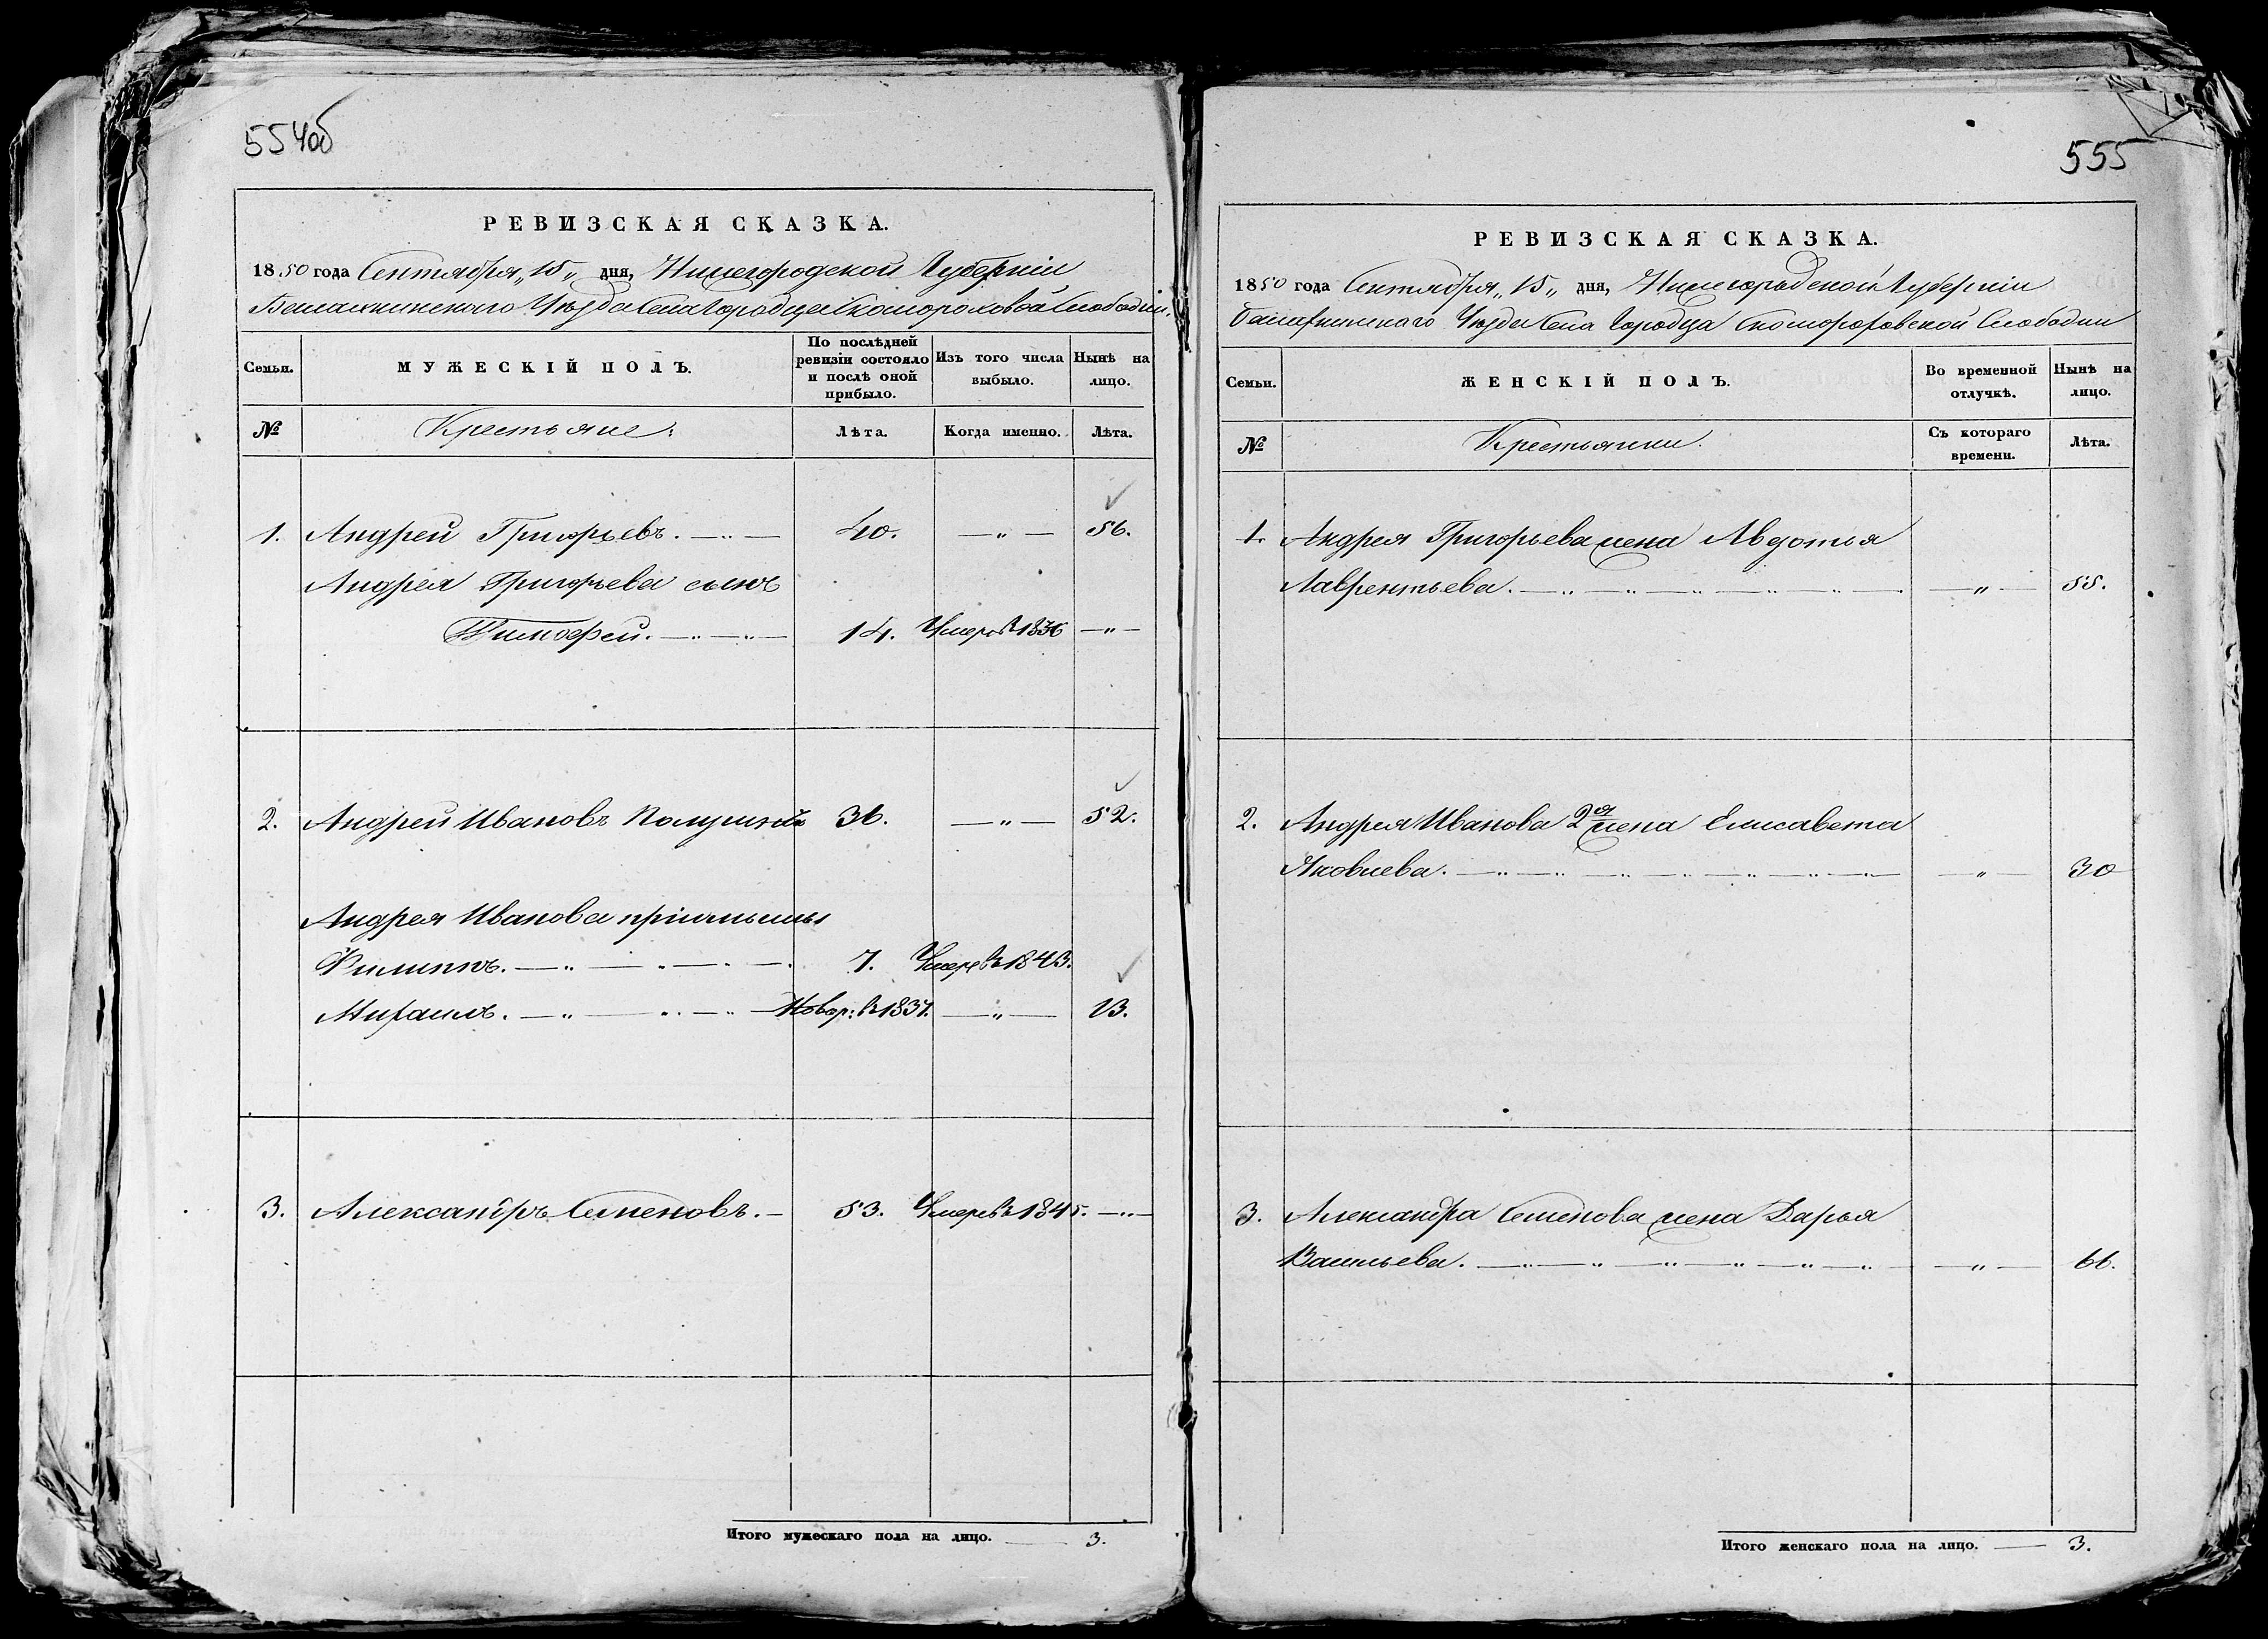 554об
РЕВИЗСКАЯ СКАЗКА.
1850 года Сентября „15„ дня, Нижегородской Губерніи
Балахнинского Уѣзда Села Городца Скомороховой Слободы.
Семьи. МУЖЕСКІЙ ПОЛЪ. По послѣдней ревизіи состояло и послѣ оной прибыло. Изъ того числа выбыло. Нынѣ на лицо.
№ Крестьяне. Лѣта. Когда именно. Лѣта.
1. Андрей Григорьевъ. 40. — „ — 56.
Андрея Григорьева сынъ
Тимофей. 14. Умеръ въ 1836 — „ —
2. Андрей Ивановъ 36. — „ — 52.
Андрея Иванова пріимыши
Филиппъ. 7. Умеръ въ 1843.
Михаилъ. въ 1837. — „ — 13.
3. Александръ Семеновъ. — 53. Умеръ въ 1845. — „ —
Итого мужескаго пола на лицо. — 3.
555
РЕВИЗСКАЯ СКАЗКА.
1850 года Сентября „15„ дня, Нижегородской Губерніи
Балахнинскаго Уѣзда Села Городца Скомороховской Слободы
Семьи. ЖЕНСКІЙ ПОЛЪ. Во временной отлучкѣ. Нынѣ на лицо.
№ Крестьянки. Съ котораго времени. Лѣта.
1. Андрея Григорьева жена Авдотья
Лаврентьева. — „ — 55.
2. Андрея Иванова 2я жена Елисавета
Яковлева. — „ — 30
3. Александра Семенова жена Дарья
Васильева. — „ — 66.
Итого женскаго пола на лицо. — 3.